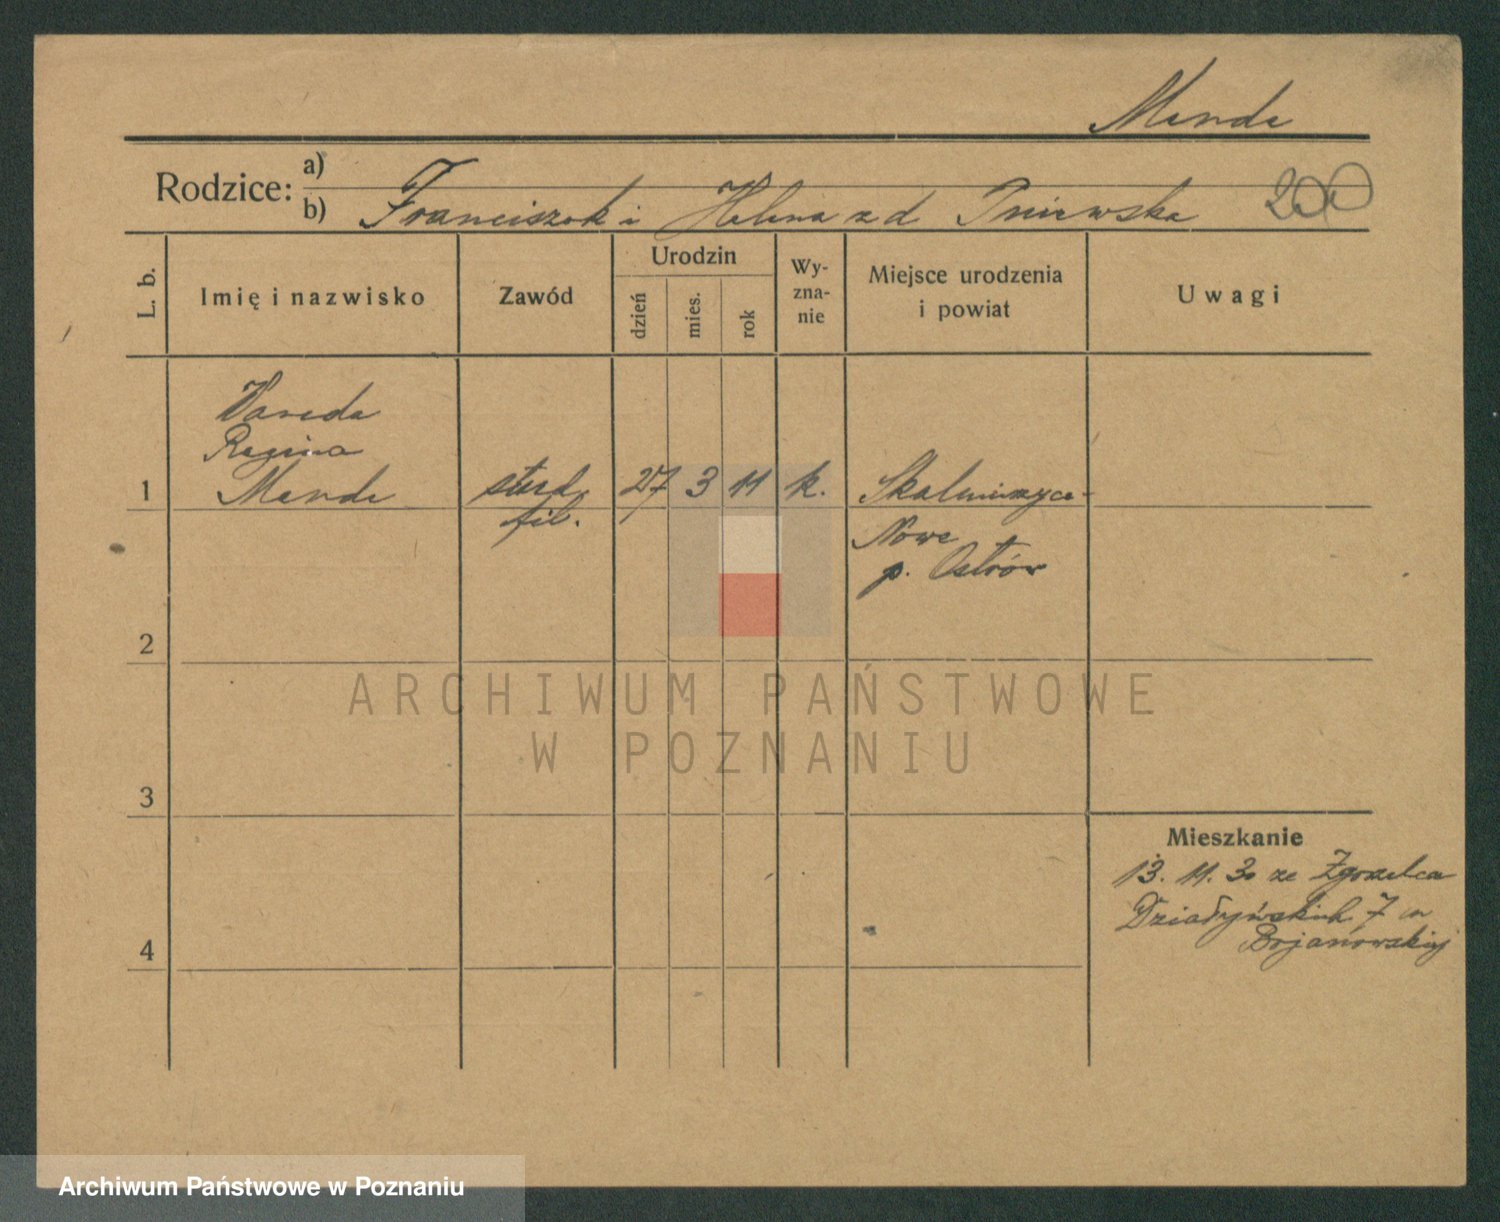 Mende
Rodzice: a)
b) Franciszek i Helena z d Pniewska 200
L. b.
Imię i nazwisko
Zawód
Urodzin
dzień
mies.
rok
Wy-
zna-
nie
Miejsce urodzenia
i powiat
Uwagi
Wanda
Regina
1 Mende stud. 27 3 11 k. Skalmierzyce-
fil. Nowe
p. Ostrów
2
ARCHIWUM PAŃSTWOWE
W POZNANIU
3
Mieszkanie
13. 11. 30 ze Zgorzelca
Działyńskich 7 m
Bojanowskiej
4
Archiwum Państwowe w Poznaniu